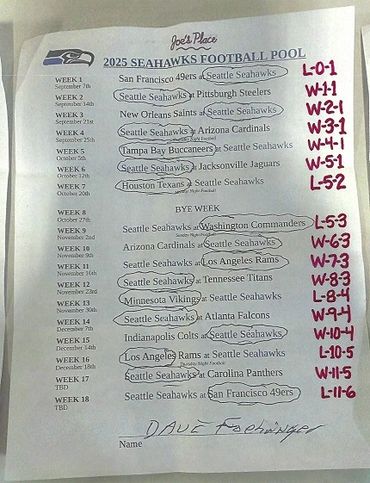 Joe's Place
2025 SEAHAWKS FOOTBALL POOL
WEEK 1 San Francisco 49ers at Seattle Seahawks L-0-1
September 7th
WEEK 2 Seattle Seahawks at Pittsburgh Steelers W-1-1
September 14th
WEEK 3 New Orleans Saints at Seattle Seahawks W-2-1
September 21st
WEEK 4 Seattle Seahawks at Arizona Cardinals W-3-1
September 25th Thursday Night Football
WEEK 5 Tampa Bay Buccaneers at Seattle Seahawks W-4-1
October 5th
WEEK 6 Seattle Seahawks at Jacksonville Jaguars W-5-1
October 12th
WEEK 7 Houston Texans at Seattle Seahawks L-5-2
October 20th Monday Night Football
WEEK 8 BYE WEEK
October 27th
WEEK 9 Seattle Seahawks at Washington Commanders L-5-3
November 2nd Sunday Night Football
WEEK 10 Arizona Cardinals at Seattle Seahawks W-6-3
November 9th
WEEK 11 Seattle Seahawks at Los Angeles Rams W-7-3
November 16th
WEEK 12 Seattle Seahawks at Tennessee Titans W-8-3
November 23rd
WEEK 13 Minnesota Vikings at Seattle Seahawks L-8-4
November 30th
WEEK 14 Seattle Seahawks at Atlanta Falcons W-9-4
December 7th
WEEK 15 Indianapolis Colts at Seattle Seahawks W-10-4
December 14th
WEEK 16 Los Angeles Rams at Seattle Seahawks L-10-5
December 18th Thursday Night Football
WEEK 17 Seattle Seahawks at Carolina Panthers W-11-5
TBD
WEEK 18 Seattle Seahawks at San Francisco 49ers L-11-6
TBD
DAVE
Name